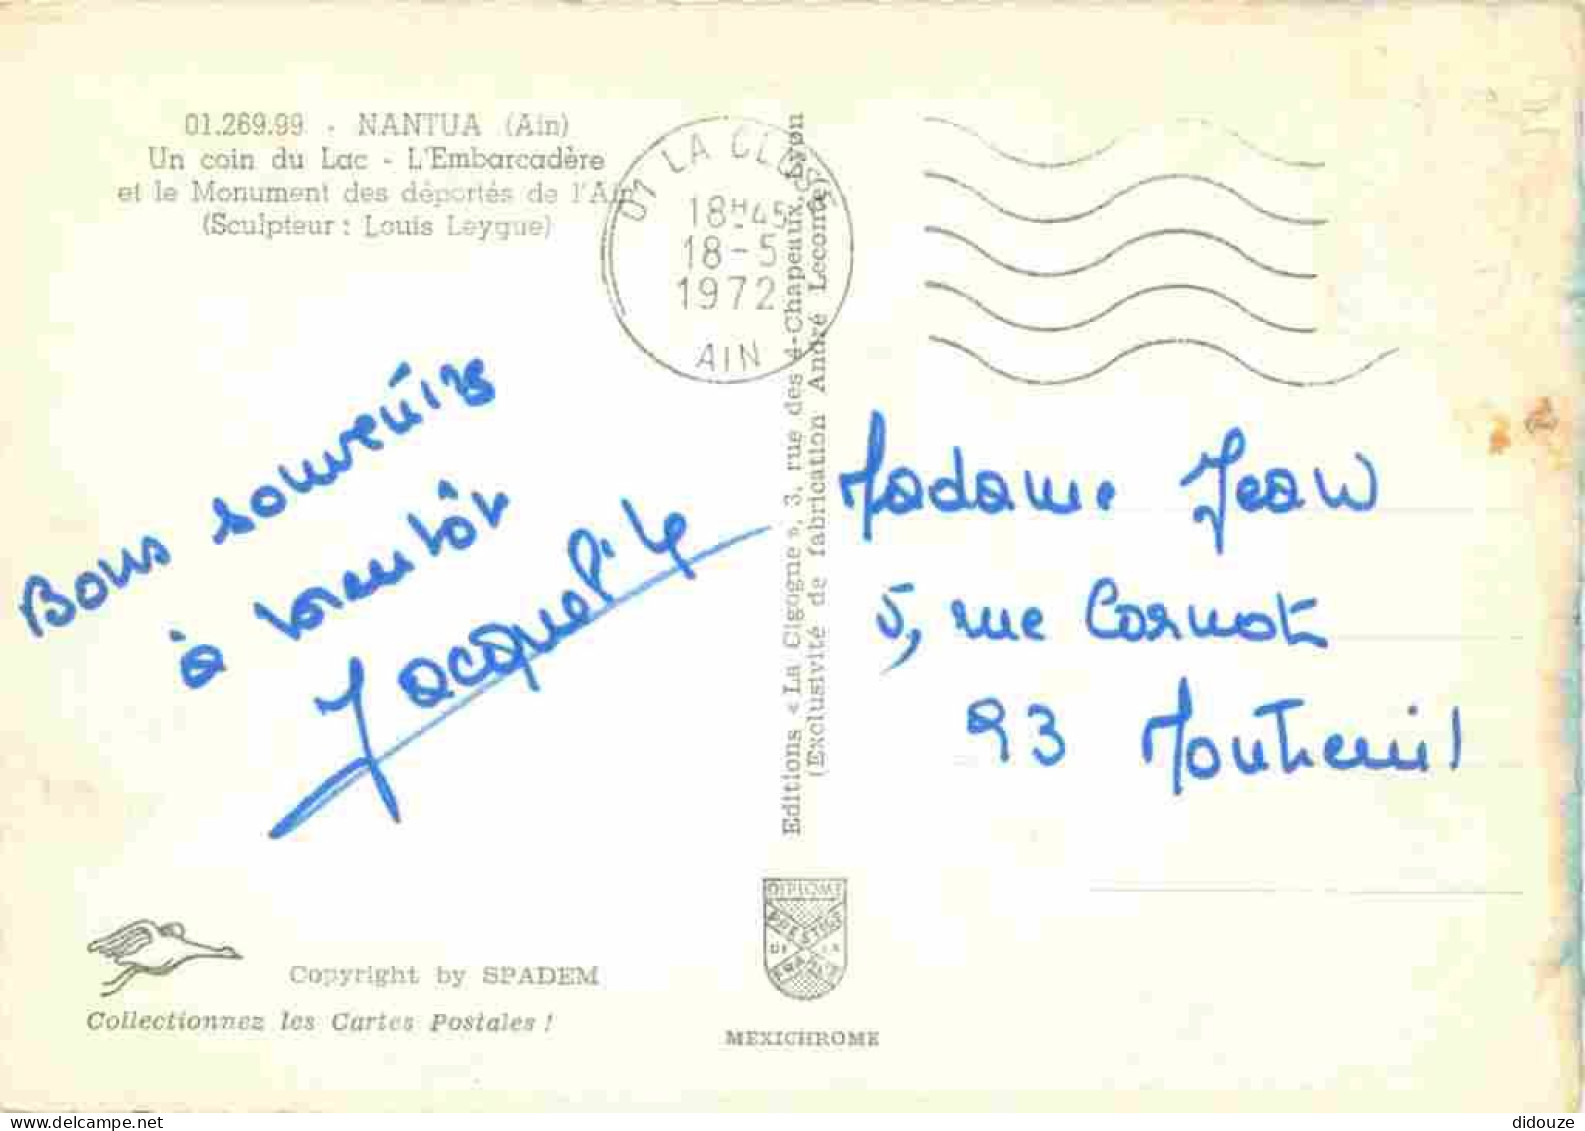 01.269.99 - NANTUA (Ain)
Un coin du Lac - L'Embarcadère
et le Monument des déportés de l'Ain
(Sculpteur : Louis Leygue)
01 LA CLUSE
18H45
18-5
1972
AIN
Bons souvenirs
à bientôt
Jacqueline
Editions « La Cigogne », 3, rue des 4-Chapeaux, Lyon
(Exclusivité de fabrication André Leconte)
Madame Jean
5, rue Carnot
93 Montreuil
DIPLOME
PRESTIGE
DE LA
FRANCE
Copyright by SPADEM
Collectionnez les Cartes Postales !
MEXICHROME
delcampe.net
didouze